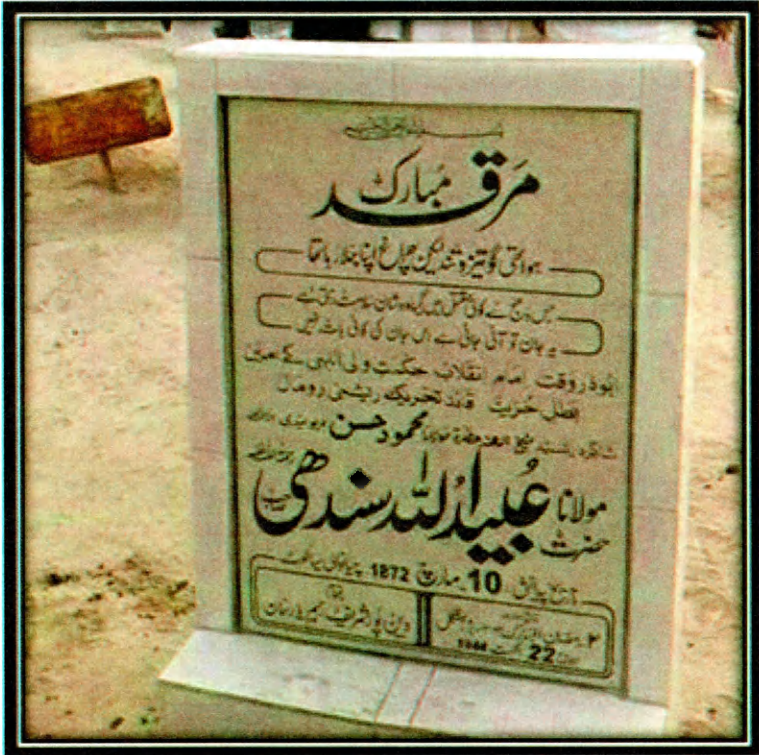 بسم اللہ الرحمن الرحیم
مرقد مبارک
ہوا تھی گو تیز و تند لیکن چراغ اپنا جلا رہا تھا
جس دھج سے کوئی مقتل میں گیا وہ شان سلامت رہتی ہے
یہ جان تو آنی جانی ہے اس جان کی کوئی بات نہیں
ابوذر وقت امام انقلاب حکمت ولی اللہی کے امین
بطل حریت قائد تحریک ریشمی رومال
شاگرد رشید شیخ الہند حضرت مولانا محمود حسن دیوبندی
حضرت مولانا عبید اللہ سندھی
تاریخ پیدائش 10 مارچ 1872
22 اگست 1944
دین پور شریف رحیم یار خان